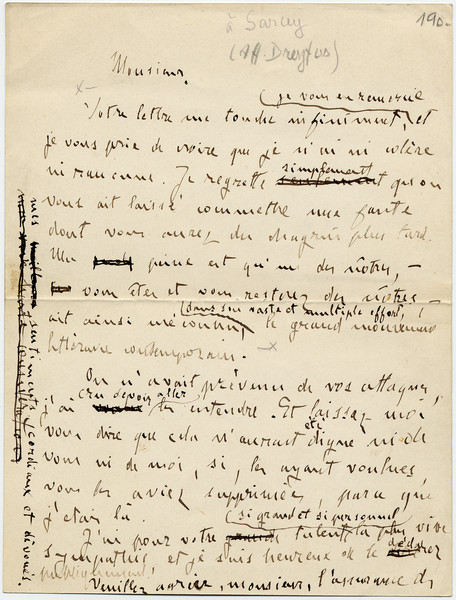 190.
à Sarcey
(Aff. Dreyfus)
Monsieur,
(je vous en remercie
Votre lettre me touche infiniment, et
je vous prie de croire que je n'ai ni colère
ni rancune. Je regrette simplement qu'on
vous ait laissé commettre une faute
dont vous aurez du chagrin plus tard.
Ma peine est qu'un des nôtres, –
vous êtes et vous resterez des nôtres –
(dans son vaste et multiple effort,
ait ainsi méconnu, le grand mouvement
littéraire contemporain.
On m'avait prévenu de vos attaques,
j'ai cru devoir aller les entendre. Et laissez moi
vous dire que cela n'aurait été digne ni de
vous ni de moi, si, les ayant voulues
vous les aviez supprimées, parce que
j'étais là.
(si grand et si personnel
J'ai pour votre talent la plus vive
sympathie, et je suis heureux de le
publiquement.
Veuillez agréer, monsieur, l'assurance de
mes sentiments cordiaux et dévoués.